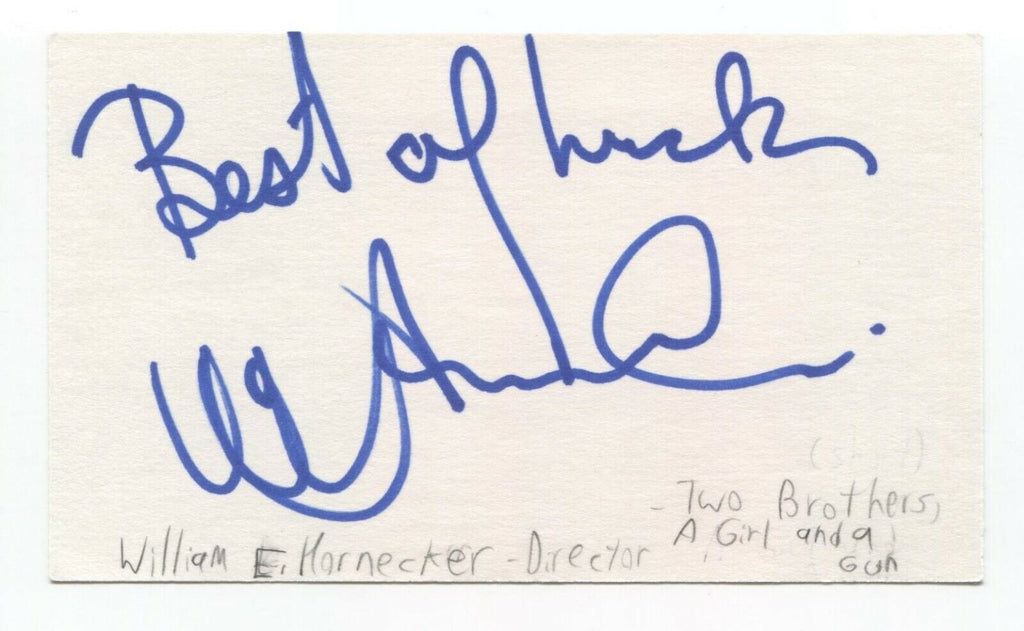 Best of luck
(short)
- Two Brothers,
William E. Hornecker - Director A Girl and a
Gun